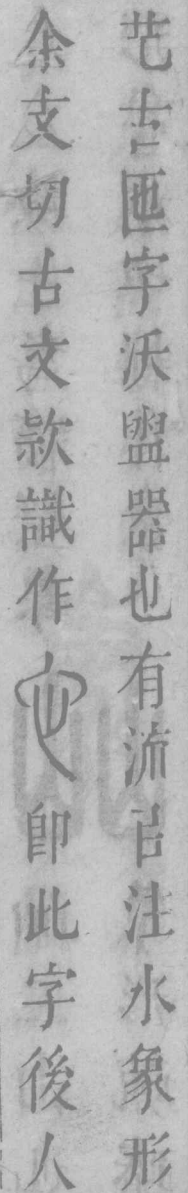 古匜字沃盥器也有流㠯注水象形
余支切古文款識作即此字後人